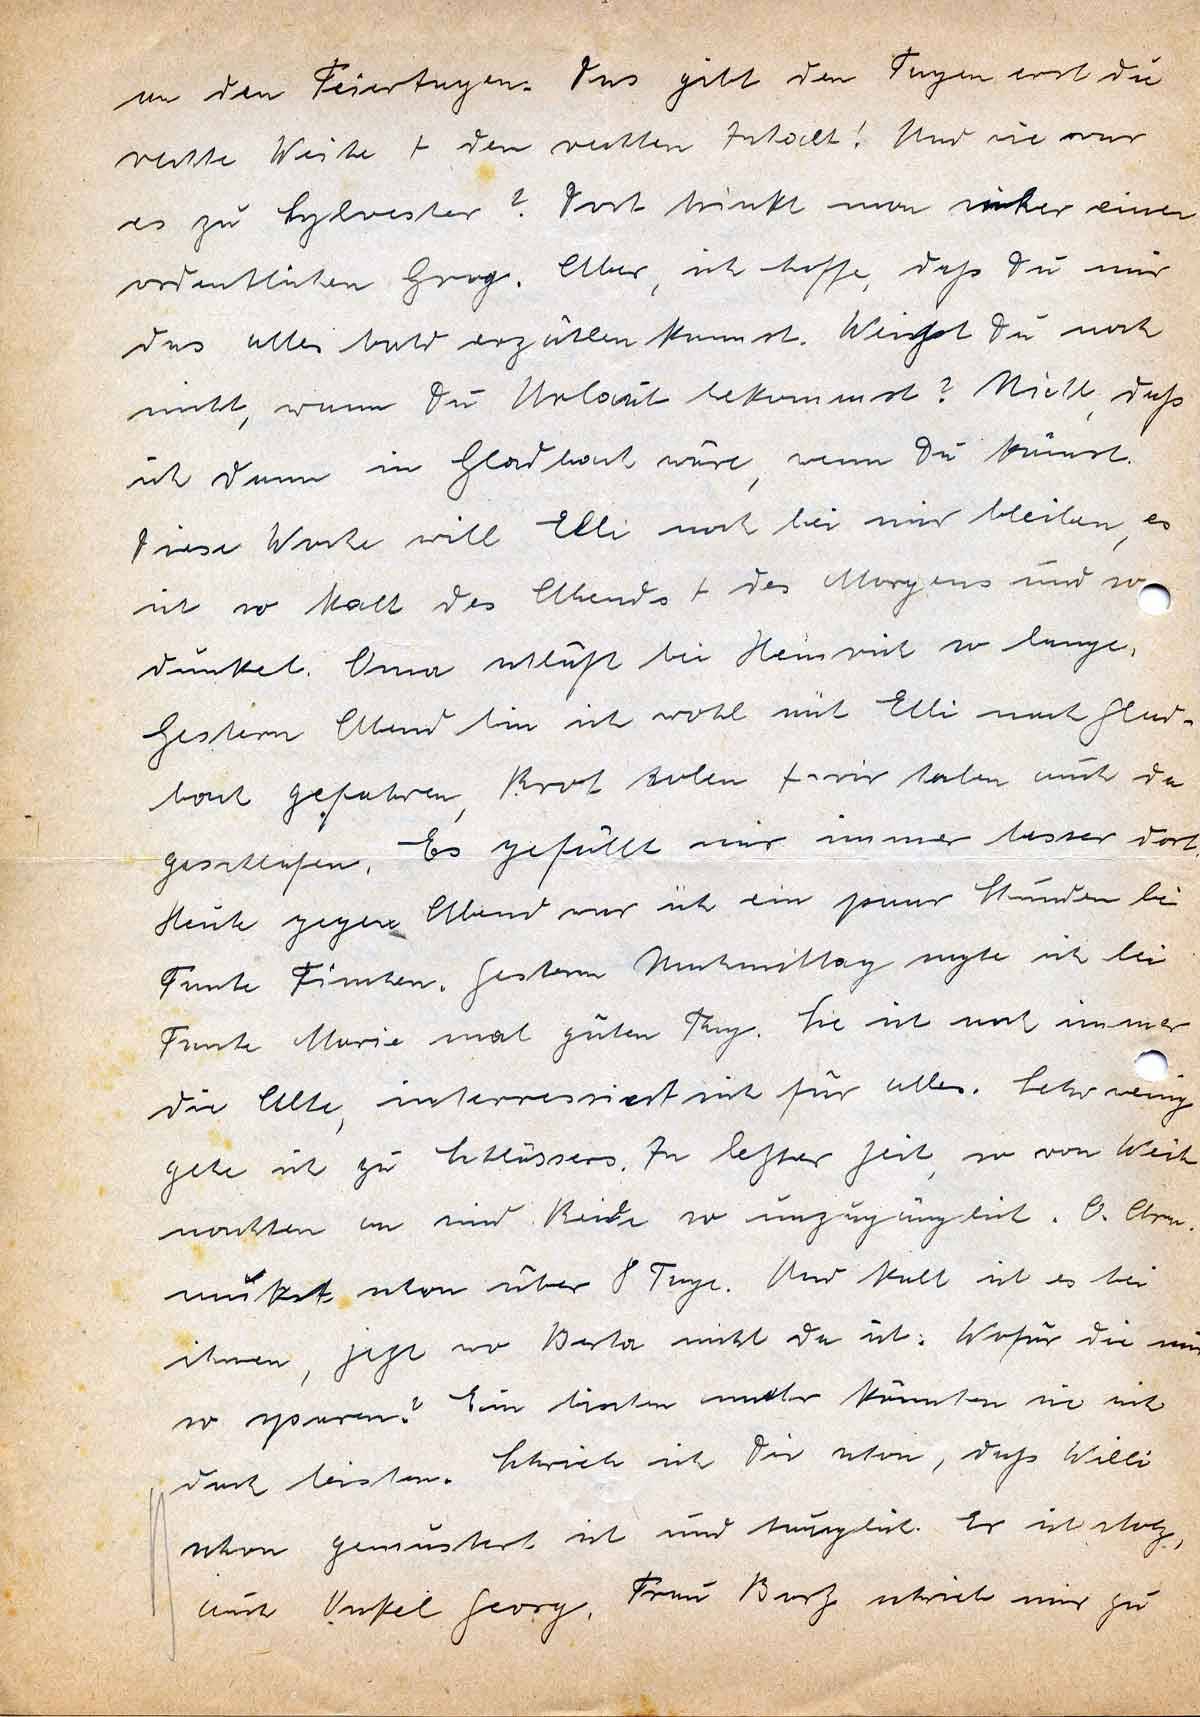 an den Feiertagen. Das gibt den Tagen erst die
rechte Weihe + den rechten Inhalt! Und wie war
es zu Sylvester? Dort trinkt man sicher einen
ordentlichen Grog. Aber, ich hoffe, daß Du mir
das alles bald erzählen kannst. Weißt Du noch
nicht, wann Du Urlaub bekommst? Nicht, daß
ich dann in Gladbach wäre, wenn Du kämst.
Diese Woche will Elli noch bei mir bleiben, es
ist so kalt des Abends + des Morgens und so
dunkel. Oma schläft bei Heinrich so lange.
Gestern Abend bin ich wohl mit Elli nach Glad-
bach gefahren, Brot holen + wir haben auch da
geschlafen. Es gefällt mir immer besser dort.
Heute gegen Abend war ich ein paar Stunden bei
Tante Finchen. Gestern Nachmittag sagte ich bei
Tante Marie mal guten Tag. Sie ist noch immer
die Alte, interressiert sich für alles. Sehr wenig
gehe ich zu Schlössers. In letzter Zeit, so von Weih
nachten an sind Beide so unzugänglich. O. Arn.
muckst schon über 8 Tage. Und kalt ist es bei
ihnen, jetzt wo Berta nicht da ist. Wofür die nur
so sparen? Ein bischen mehr könnten sie sich
doch leisten. Schrieb ich Dir schon, daß Willi
schon gemustert ist und tauglich. Er ist stolz,
auch Onkel Georg. Frau Barz schrieb mir zu